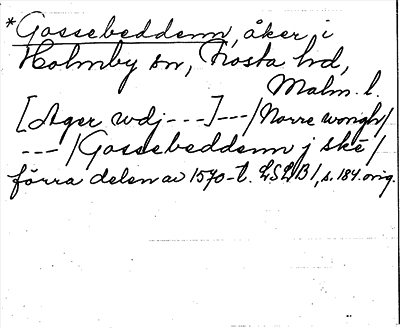 *Gassebeddenn, åker i
Holmby sn, Frosta hd,
Malm. l.
[Ager vdj---]---/Norre wongh/
---/Gassebeddenn j skě/
förra delen av 1570-t. LSLB1, s. 184. orig.